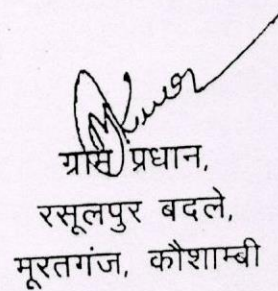 ग्राम प्रधान,
रसूलपुर बदले,
मूरतगंज, कौशाम्बी